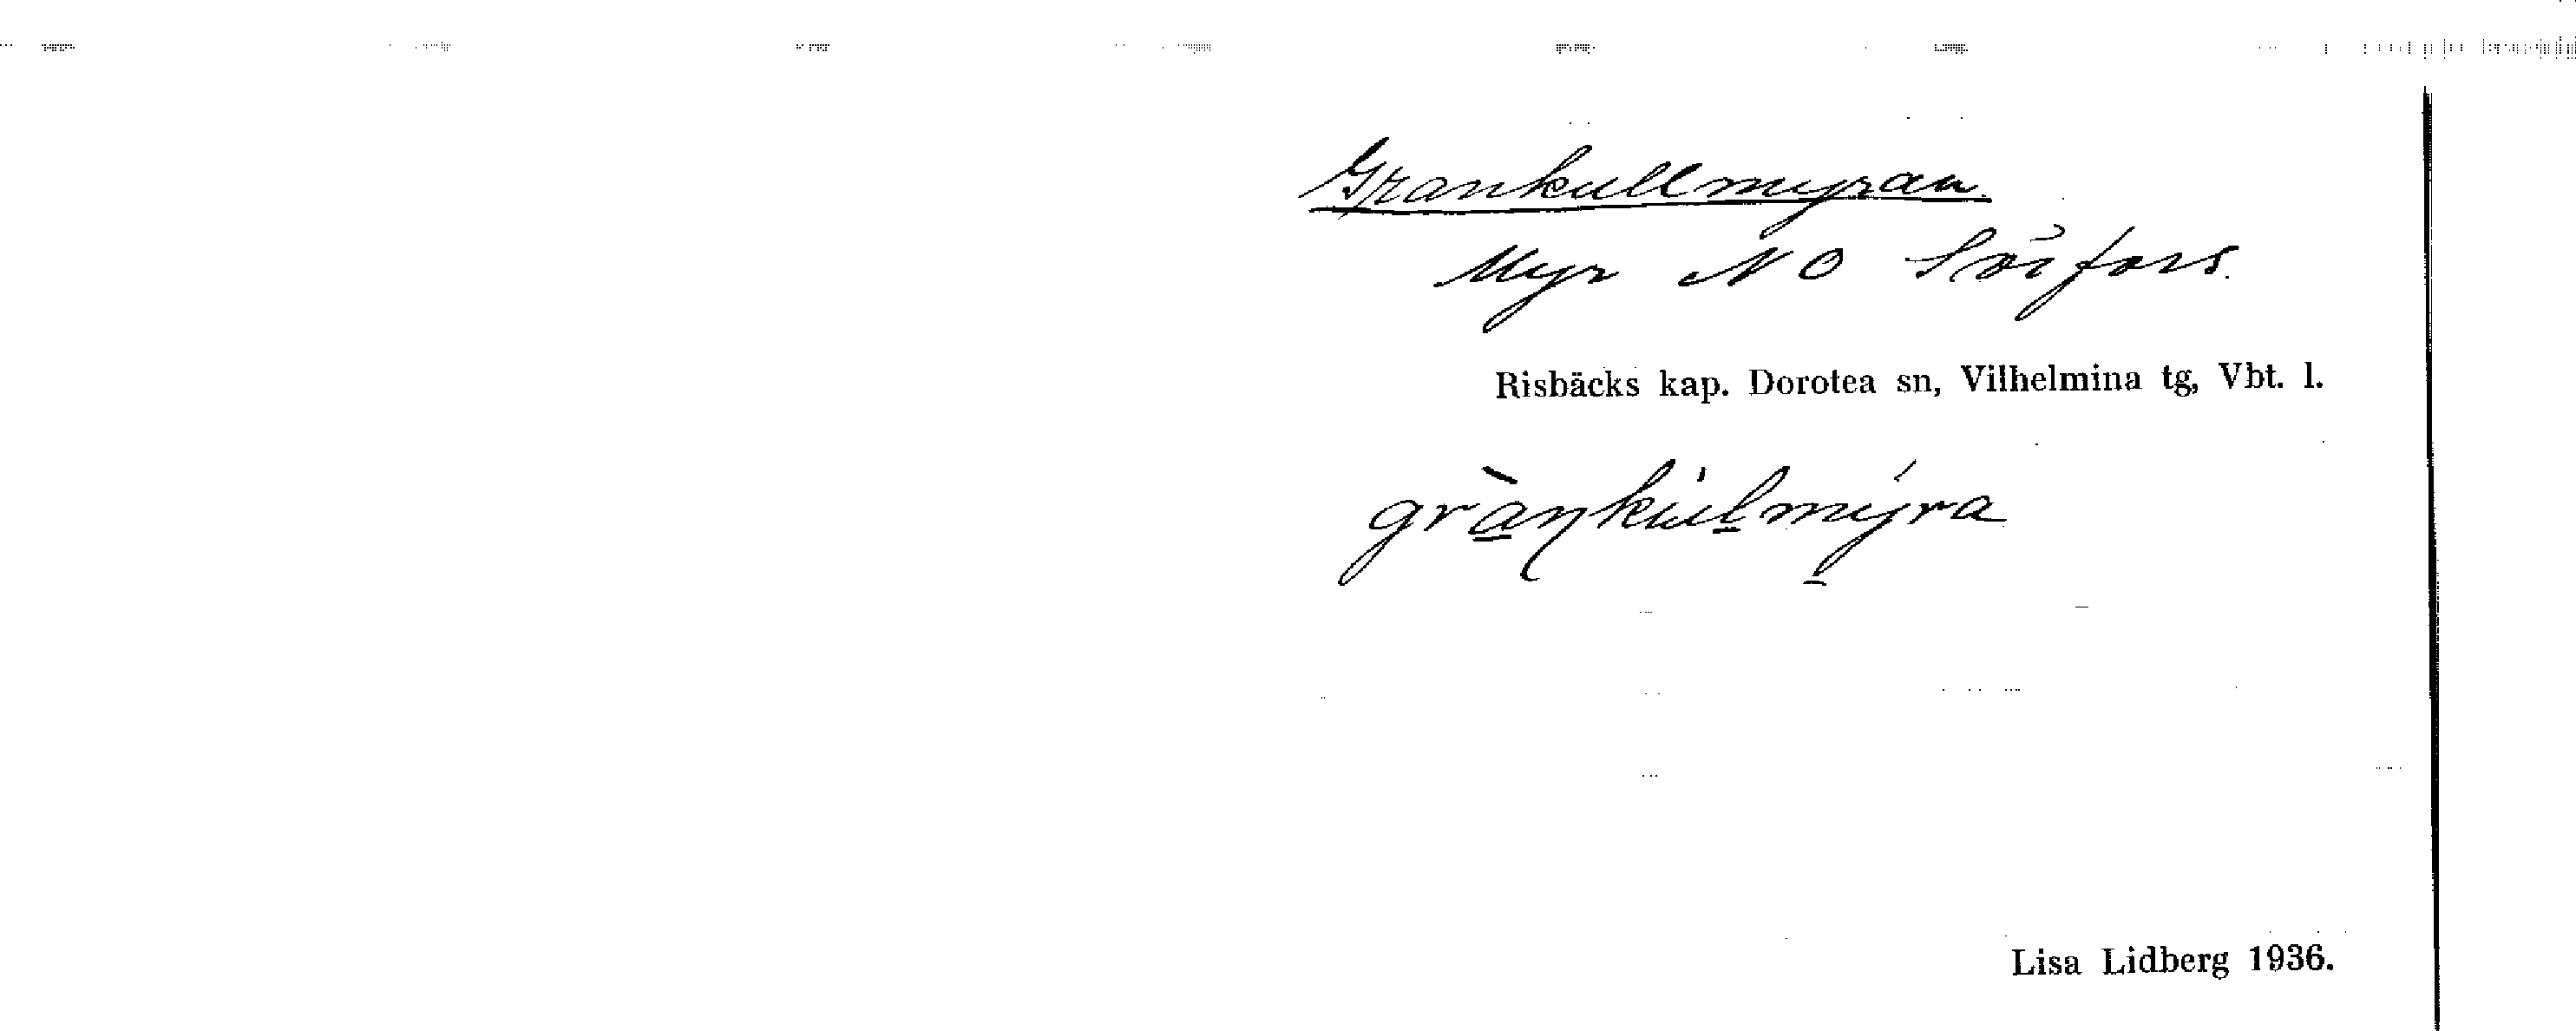 Grankullmyran.
Myr NO Söifors.
Risbäcks kap. Dorotea sn, Vilhelmina tg, Vbt. l.
gràŋkúlmýra
Lisa Lidberg 1936.